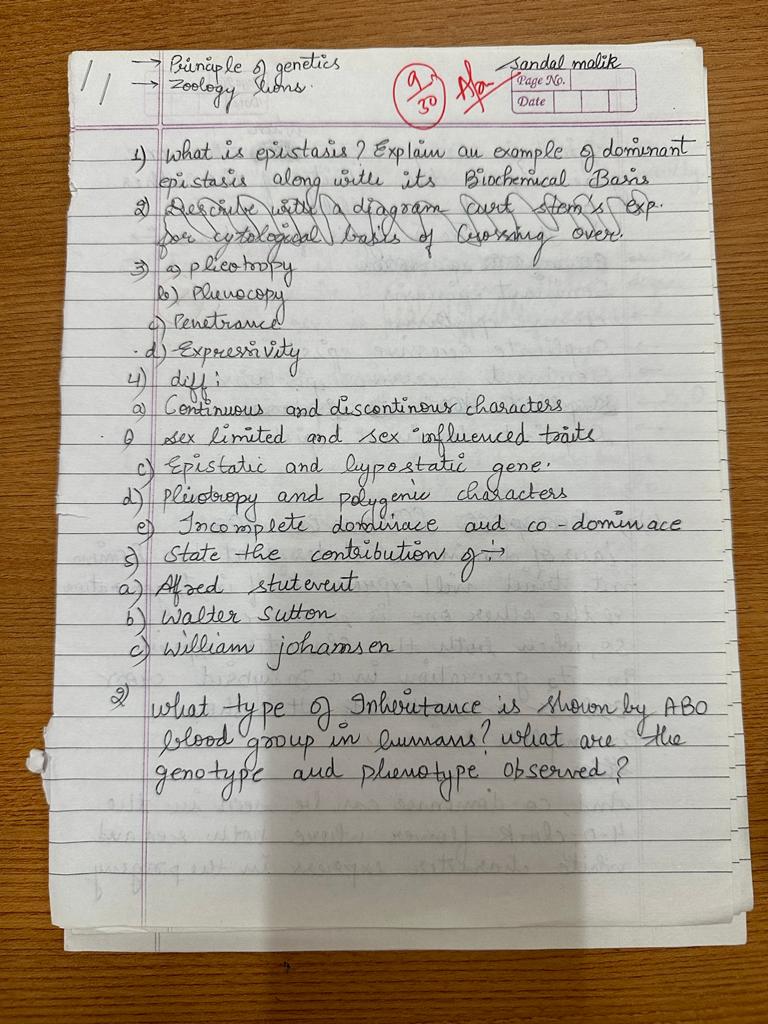 11
→ Principle of genetics
→ Zoology Hons.
9/30
Sandal malik
Page No.
Date
1) What is epistasis? Explain an example of dominant
epistasis along with its Biochemical Basis
2) Describe with a diagram curt stern's exp.
for cytological basis of Crossing over.
3) a) pleiotropy
b) Phenocopy
c) Penetrance
d) Expressivity
4) diff:
a) Continuous and discontinous characters
sex limited and sex influenced traits
c) Epistatic and hypostatic gene.
d) Pleiotropy and polygenic characters
e) Incomplete dominace and co-dominace
5) State the contribution of :→
a) Alfred stutevent
b) Walter Sutton
c) William johamsen
2) what type of Inheritance is shown by ABO
blood group in humans? what are the
genotype and phenotype observed?